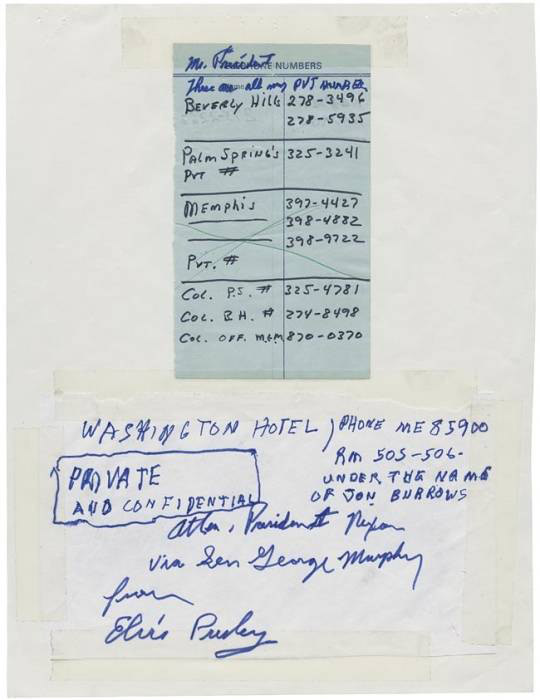 Mr. President
PHONE NUMBERS
These are all my PVT numbers
Beverly Hills 278-3496
278-5935
Palm Spring's 325-3241
Pvt #
Memphis 397-4427
398-4882
398-9722
Pvt. #
Col. P.S. # 325-4781
Col. B.H. # 274-8498
Col. OFF. M.G.M 870-0370
WASHINGTON HOTEL) PHONE ME 85900
RM 505-506-
UNDER THE NAME
OF JON BURROWS
PRIVATE
AND CONFIDENTIAL
Attn. President Nixon
via Sen George Murphy
from
Elvis Presley